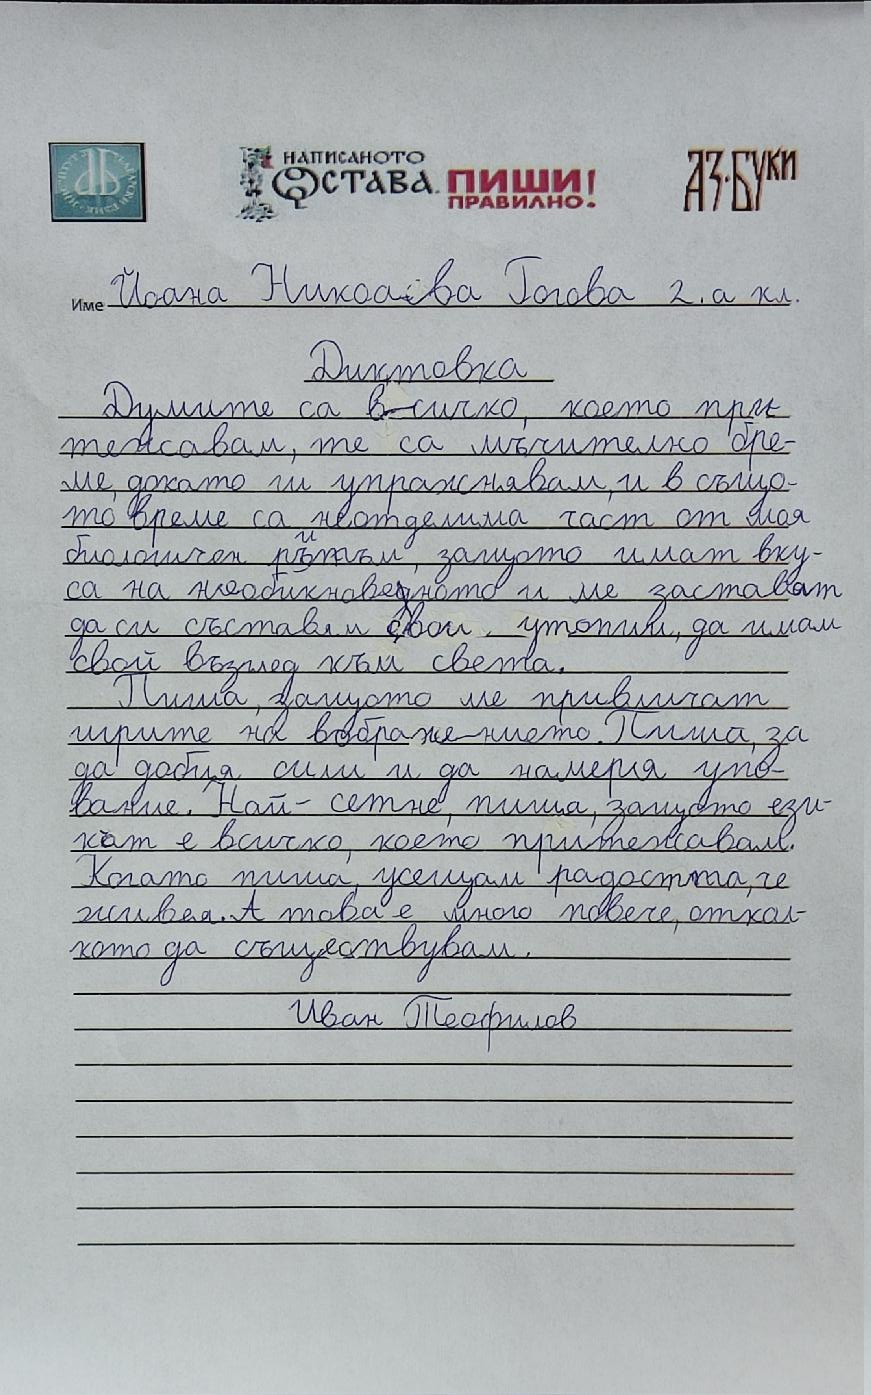 НАПИСАНОТО
ОСТАВА. ПИШИ
ПРАВИЛНО!
АЗ·БУКИ
Име Йоана Николаева Гогова 2. а кл.
Диктовка
Думите са всичко, което при-
тежавам, те са мъчително бре-
ме, докато ги упражнявам, и в също-
то време са неотделима част от моя
биологичен ритъм, защото имат вку-
са на необикновеното и ме заставят
да си съставям свои утопии, да имам
свой възглед към света.
Пиша, защото ме привличат
игрите на въображението. Пиша, за
да добия сили и да намеря упо-
вание. Най- сетне, пиша, защото ези-
кът е всичко, което притежавам.
Когато пиша, усещам радостта, че
живея. А това е много повече, откол-
кото да съществувам.
Иван Теофилов